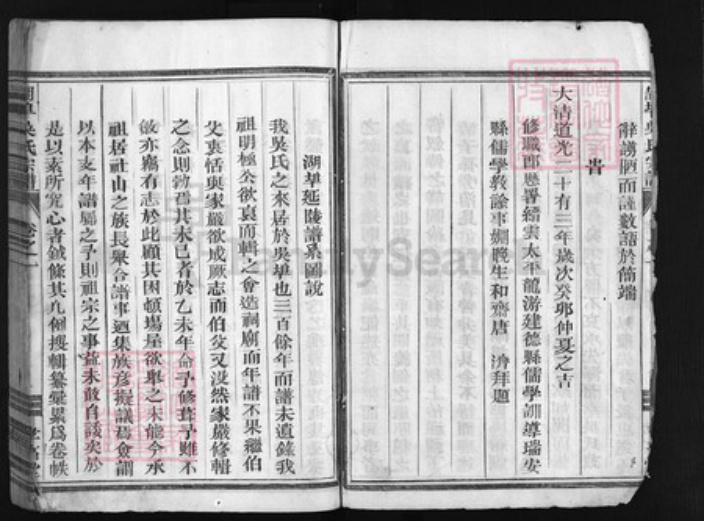 辭謭陋而謹數語於簡端
旹
大清道光二十有三年歲次癸卯仲夏之吉
修職郎歷署縉雲太平龍游建德縣儒學訓導瑞安
縣儒學教諭事姻晚生和齋唐 濟拜題
湖埠延陵譜系圖說
我吳氏之來居於吳埠也三百餘年而譜未遺錄我
祖明極公欲裒而輯之會造祠廟而年譜不果繼伯
父裏恬與家嚴欲成厥志而伯父又沒然家嚴修輯
之念則勃焉其未已者於乙未年命予修葺予雖不
敏亦竊有志於此顧其困頓場屋欲舉之未能今承
祖居社山之族長舉合譜事廼集族彥擬議焉僉謂
以本支年譜屬之予則祖宗之事益未敢自諉矣於
是以素所究心者鋮條其凡例搜輯纂彙累爲卷帙
吳氏宗譜
卷之一